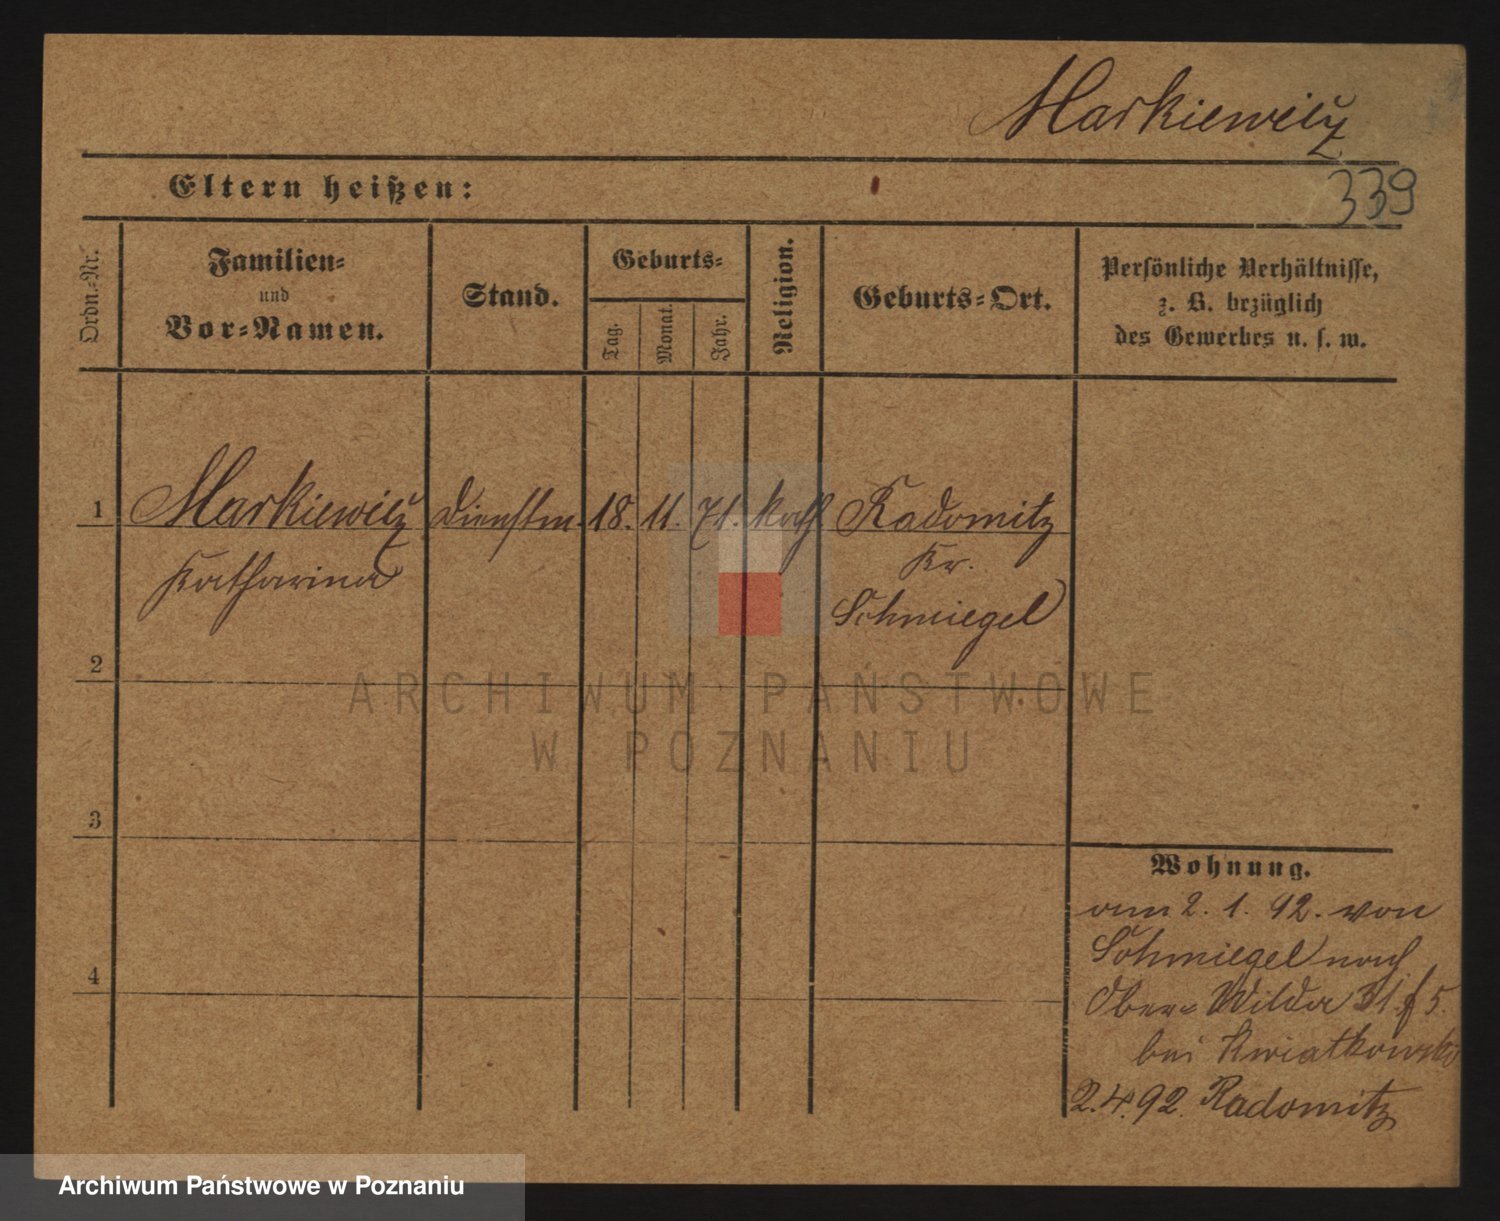 Markiewicz
Eltern heißen:
339
Ordn.-Nr.
Familien-
und
Vor-Namen.
Stand.
Geburts-
Tag.
Monat.
Jahr.
Religion.
Geburts-Ort.
Persönliche Verhältnisse,
z. B. bezüglich
des Gewerbes u. s. w.
1 Markiewicz Dienstm. 18. 11. 71. kath. Radomitz
Katharina Kr.
Schmiegel
2
3
4
Wohnung.
am 2. 1. 92. von
Schmiegel nach
Ober-Wilda 31 f 5.
bei Kwiatkowski
2.4.92. Radomitz
ARCHIWUM PAŃSTWOWE
W POZNANIU
Archiwum Państwowe w Poznaniu